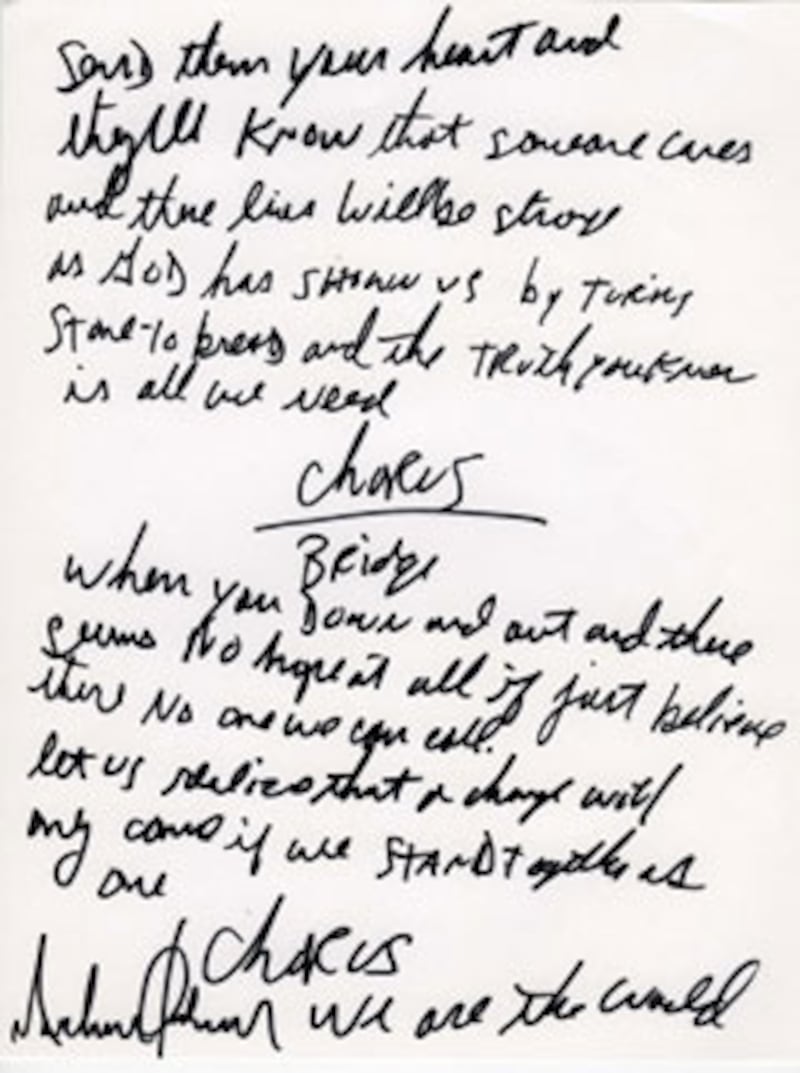 Send them your heart and
they'll know that someone cares
and there lives will be strong
as God has shown us by turing
stone-to bread and the truth you know
is all we need
Chorus
Bridge
When you down and out and there
seems no hope at all if just believe
there no one we can call.
let us realize that a change will
my come if we stand together as
one
Chorus
We are the world